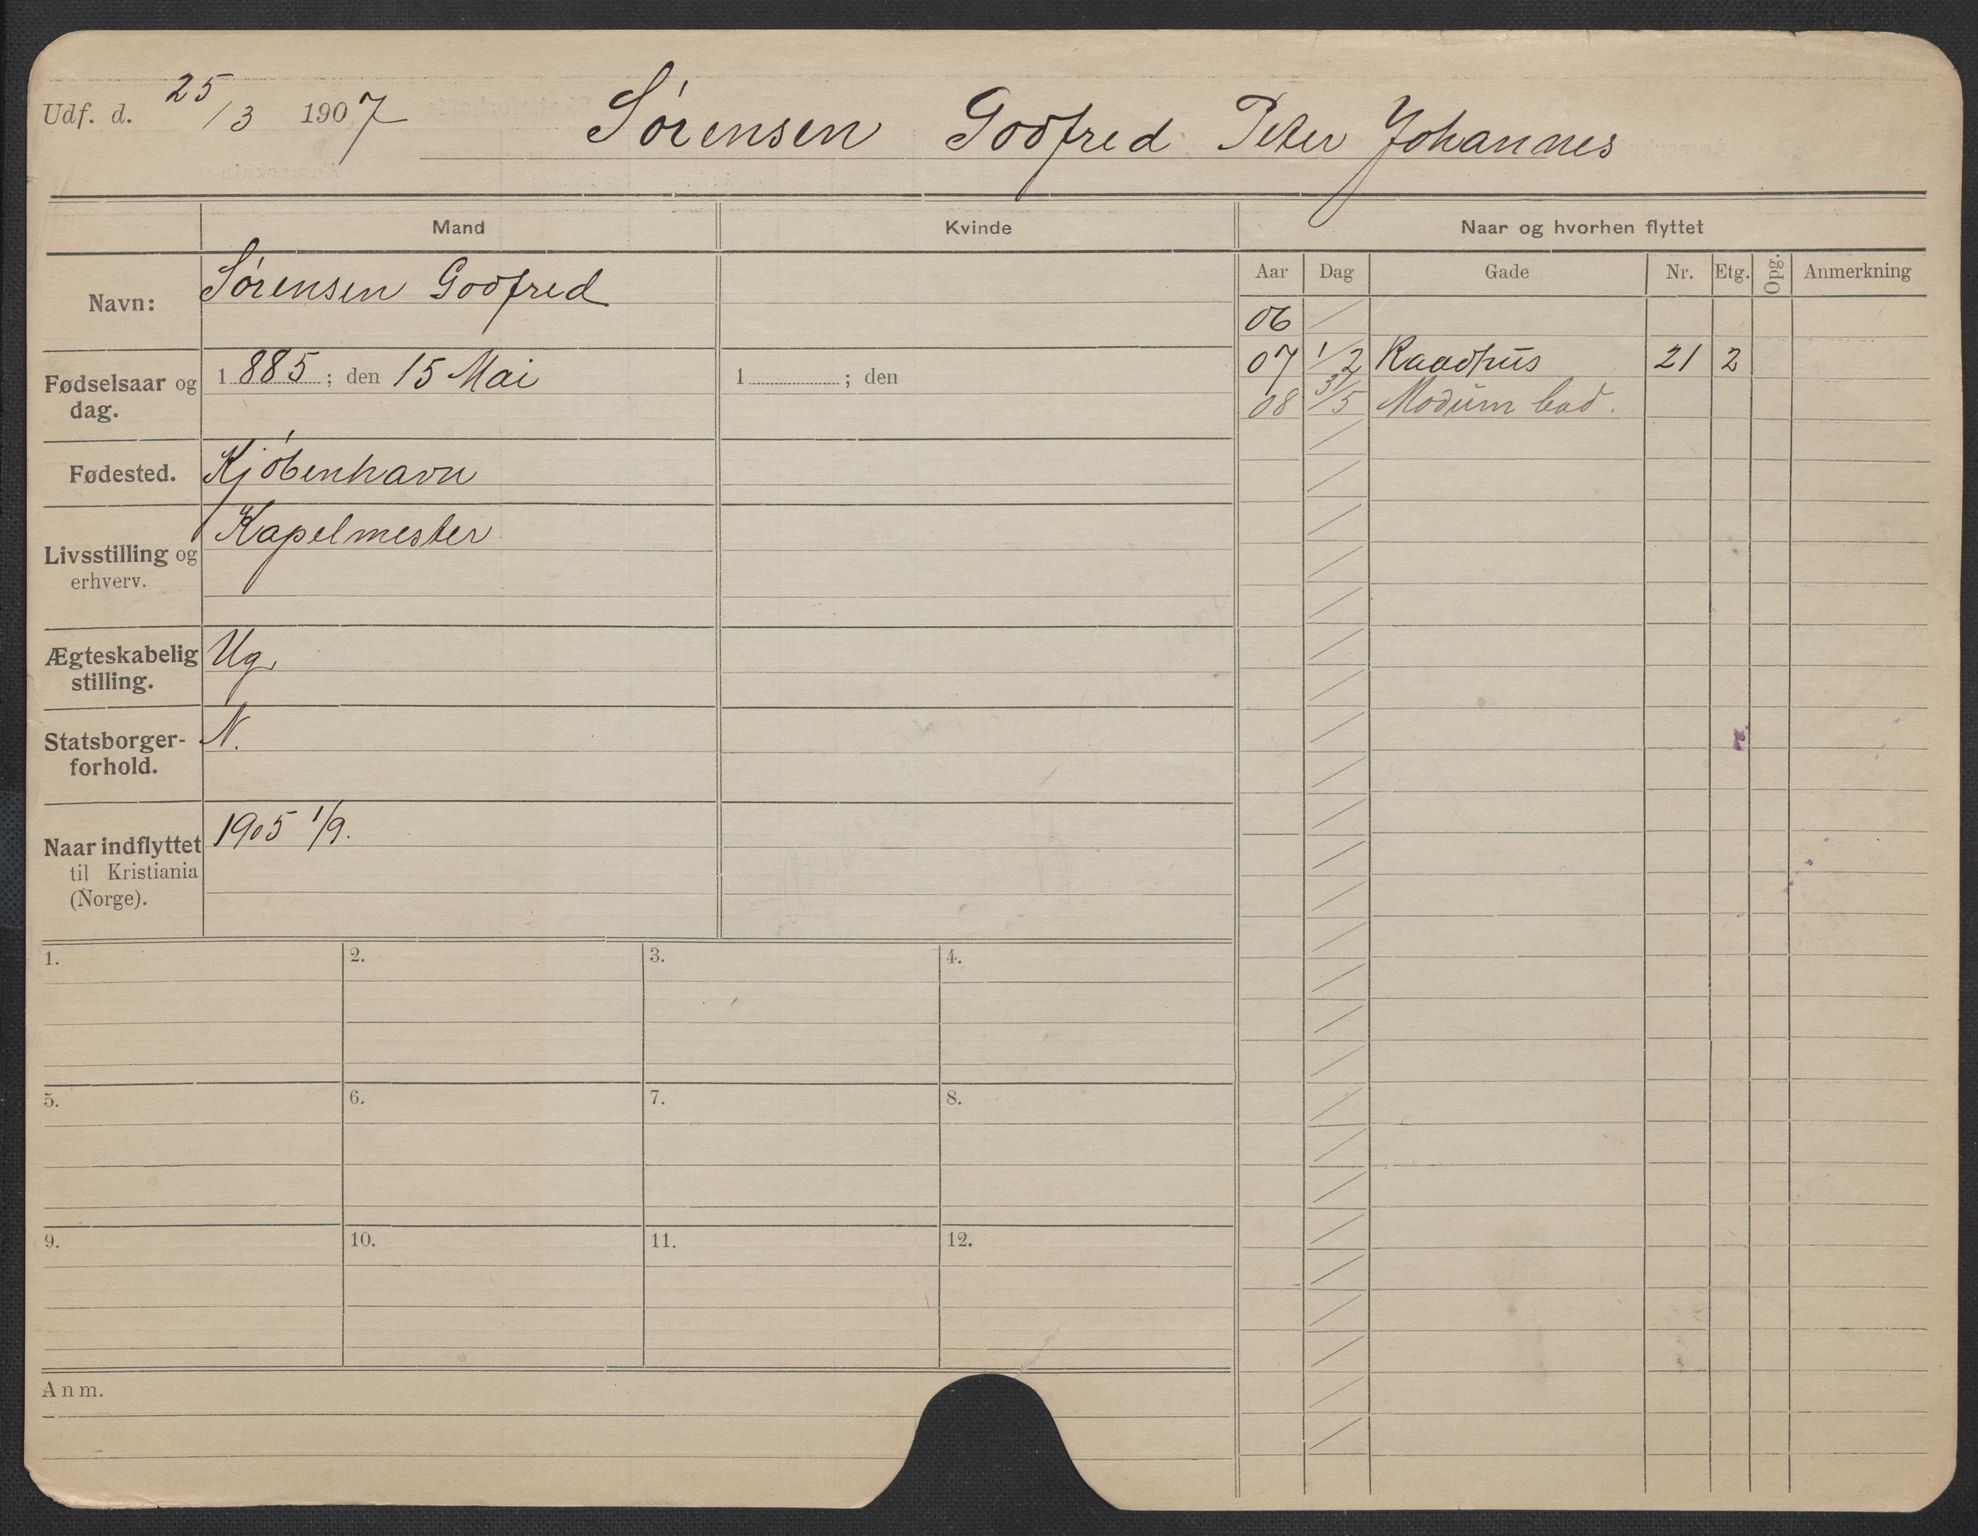 Udf. d. 25/3 1907 Sørensen Godfred Peter Johannes
Mand Kvinde Naar og hvorhen flyttet
Navn: Sørensen Godfred
Fødselsaar og dag. 1885; den 15 Mai 1 ; den
Fødested. Kjøbenhavn
Livsstilling og erhverv. Kapelmester
Ægteskabelig stilling. Ug.
Statsborger-forhold. N.
Naar indflyttet til Kristiania (Norge). 1905 1/9.
Aar Dag Gade Nr. Etg. Opg. Anmerkning
06
07 1/2 Raadhus 21 2
08 31/5 Modum bad.
1. 2. 3. 4.
5. 6. 7. 8.
9. 10. 11. 12.
Anm.